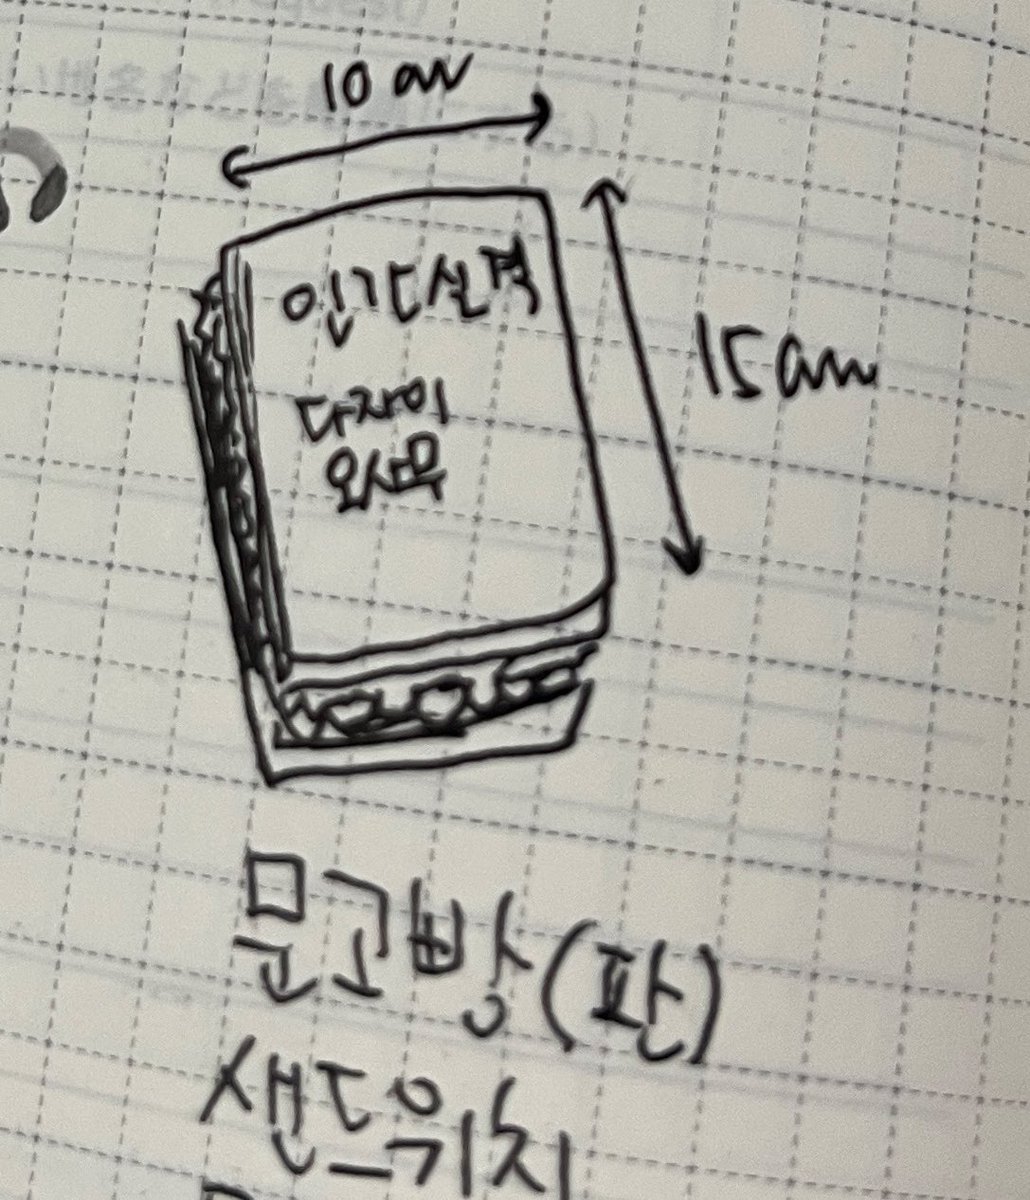 10 cm
15 cm
인간실격
다자이
오사무
문고방(판)
샌드위치